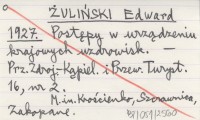 ŻULIŃSKI Edward
1927. Postępy w urządzeniu
krajowych uzdrowisk. —
Prz. Zdroj.-Kąpiel. i Przew. Turyst.
16, nr 2.
M.in. Krościenko, Szczawnica,
Zakopane.